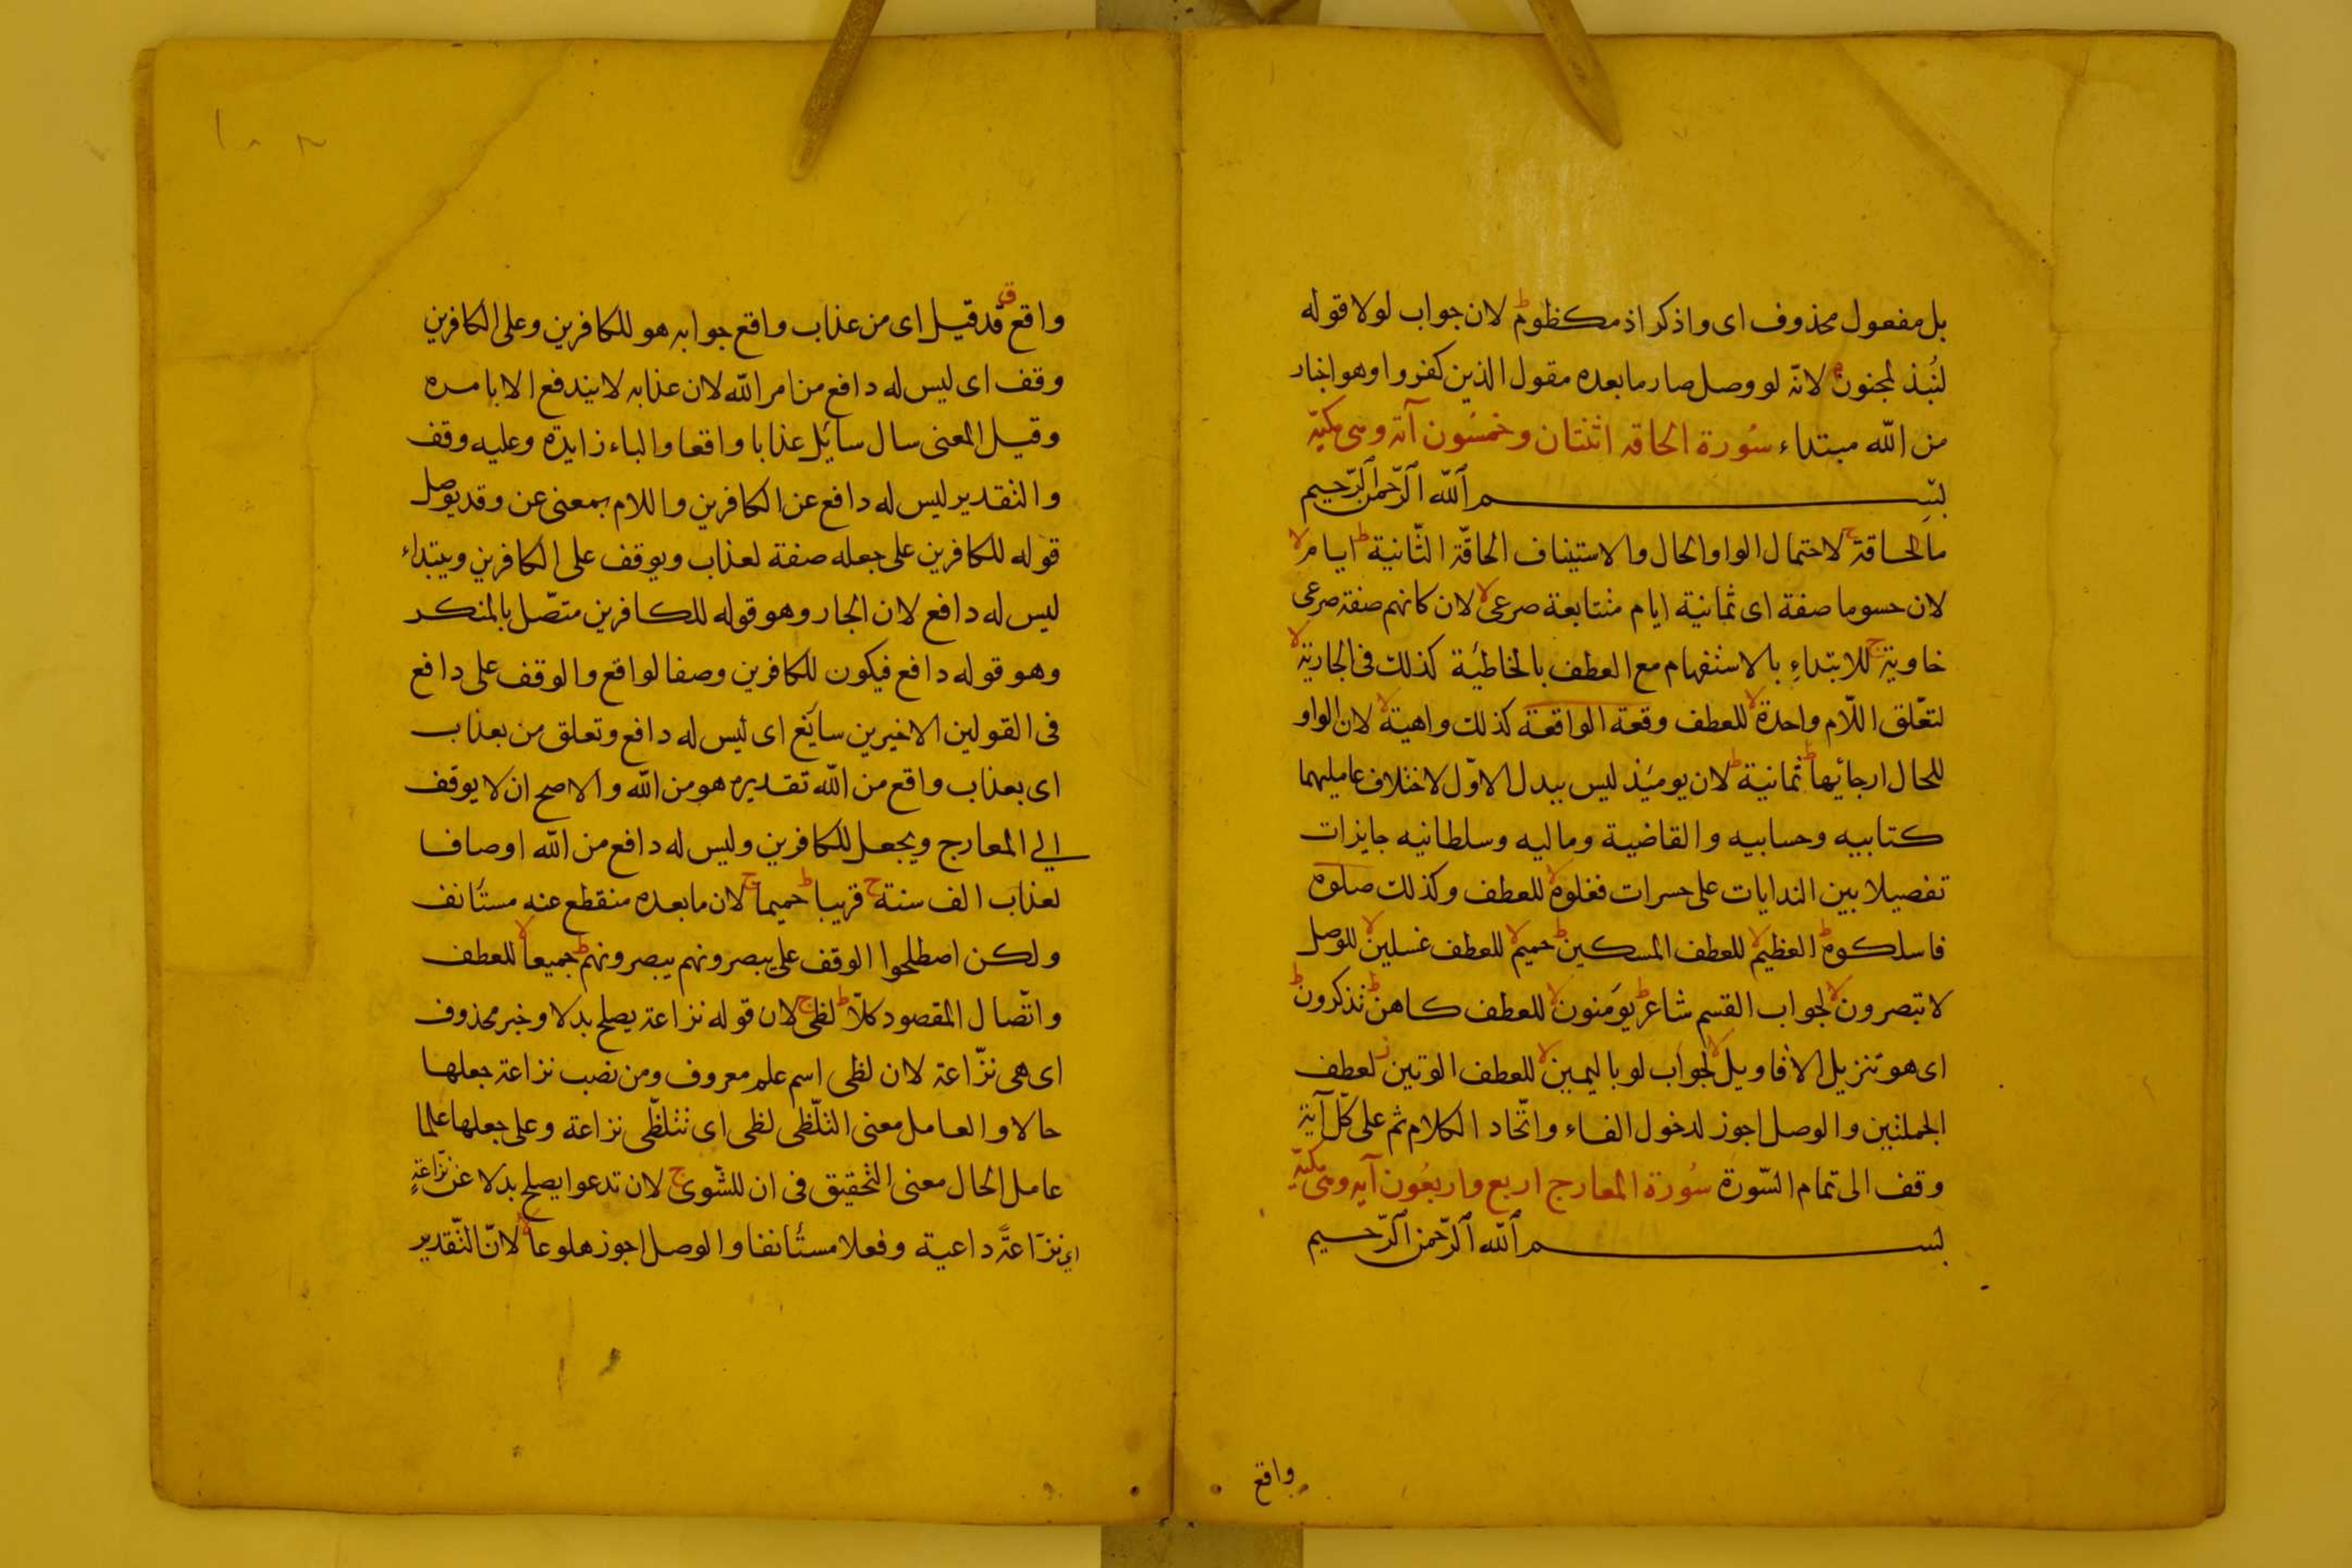 بل مفعول محذوف اى واذكر اذ مكظوم ط لان جواب لولا قوله
لنُبذ لمجنون م لانّه لو وصل صار ما بعده مقول الذين كفروا وهو اخبار
من اللّه مبتداء سُورة الحاقه اثنتان وخمسُون آية وهى مكيّة
بسم اللّه الرّحمن الرّحيم
ما الحاقة ج لاحتمال الواو الحال والاستيناف الحاقّة الثّانية ط ايام لا
لان حسوما صفة اى ثمانية ايام متتابعة صرعى لا لان كانهم صفة صرعى
خاوية ج للابتداءِ بالاستفهام مع العطف بالخاطئة كذلك فى الجارية لا
لتعّلق اللّام واحدة لا للعطف وقعة الواقعة كذلك واهية لا لان الواو
للحال ارجائها ط ثمانية ط لان يومئذ ليس ببدل الاوّل لاختلاف عامليهما
كتابيه وحسابيه والقاضية وماليه وسلطانيه جايزات
تفصيلا بين الندايات على حسرات فغلوه لا للعطف وكذلك صلوه
فاسلكوه ط العظيم لا للعطف المسكين ط حميم لا للعطف غسلين لا للوصل
لا تبصرون لا لجواب القسم شاعر ط يومنون لا للعطف كاهن ط تذكرون ط
اى هو تنزيل الاقاويل لا لجواب لو باليمين لا للعطف الوتين ز لعطف
الجملتين والوصل اجوز لدخول الفاء واتّحاد الكلام ثم على كلّ آية
وقف الى تمام السّورة سُورة المعارج اربع واربعُون آيه وهى مكيّة
بسم اللّه الرّحمن الرّحيم
واقع
واقع ق قد قيل اى من عذاب واقع جوابه هو للكافرين وعلى الكافرين
وقف اى ليس له دافع من امر اللّه لان عذابه لا يندفع الا بامره
وقيل المعنى سال سائل عذابا واقعا والباء زايدة وعليه وقف
والتقدير ليس له دافع عن الكافرين واللام بمعنى عن وقد يوصل
قوله للكافرين على جعله صفة لعذاب ويوقف على الكافرين ويبتداء
ليس له دافع لان الجار وهو قوله للكافرين متصّل بالمنكر
وهو قوله دافع فيكون للكافرين وصفا لواقع والوقف على دافع
فى القولين الاخيرين سايغ اى ليس له دافع وتعلق من بعذاب
اى بعذاب واقع من اللّه تقديره هو من اللّه والاصح ان لا يوقف
الى المعارج ويجعل للكافرين وليس له دافع من اللّه اوصافا
لعذاب الف سنة ج قريبا ط حميما ج لان ما بعده منقطع عنه مستأنف
ولكن اصطلحوا الوقف على يبصرونهم يبصرونهم ط جميعا لا للعطف
واتّصال المقصود كلّا ط لظى ج لان قوله نزاعة يصلح بدلا وخبر محذوف
اى هى نزّاعة لان لظى اسم علم معروف ومن نصب نزاعة جعلها
حالا والعامل معنى التلّظى لظى اى تتلظّى نزاعة وعلى جعلها علما
عامل الحال معنى التحقيق فى ان للشّوى ج لان تدعوا يصلح بدلا عن نزّاعة
اى نزّاعةً داعية وفعلا مستأنفا والوصل اجوز هلوعا لا لانّ التّقدير